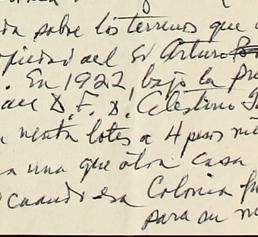 da sobre los terrenos que
piedad del Sr Arturo
. En 1922, bajo la pre
del D. F. D. Celestino
venta lotes a 4 pesos me
una que otra casa
cuando esa Colonia fu
para su